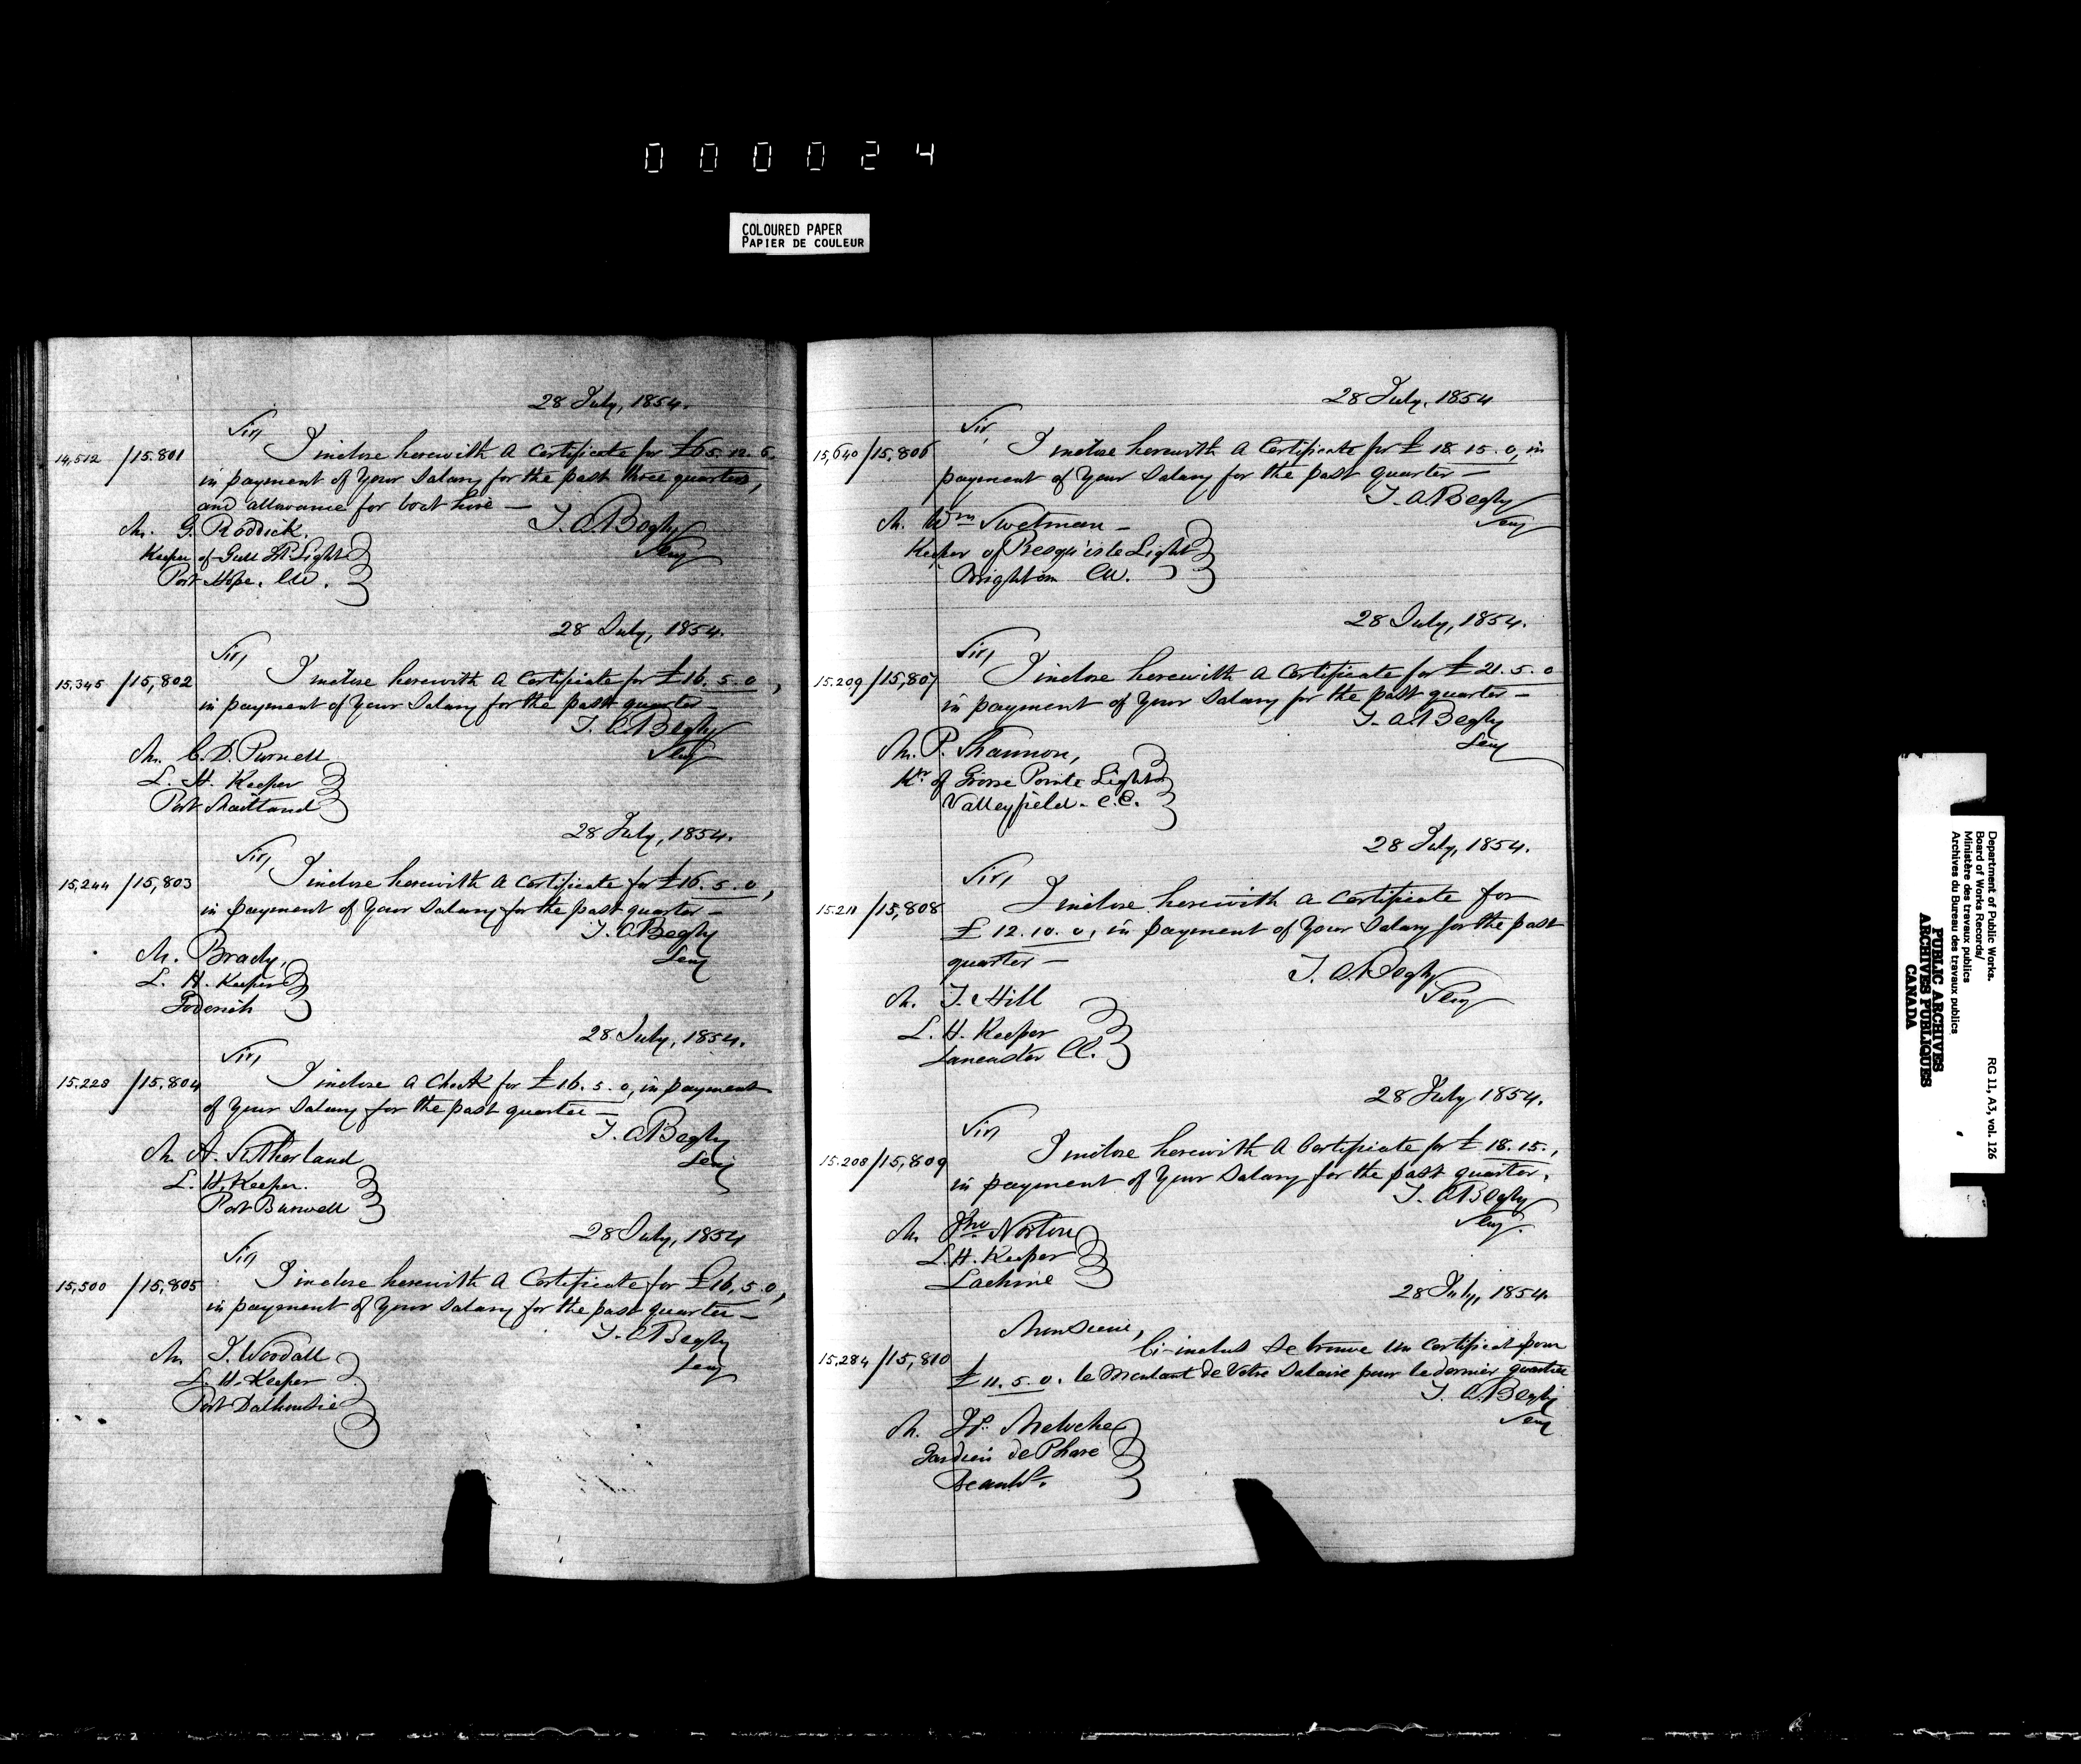 000024
COLOURED PAPER
PAPIER DE COULEUR
28 July, 1854.
Sir,
14,512 /15.801 I inclose herewith a Certificate for £65.12.6
in payment of Your Salary for the past three quarters,
and allowance for boat hire —
T. A. Begly
Secy
Mr. G. Roddick.
Keeper of Gull Id Light
Port Hope. CW.
28 July, 1854.
Sir,
15,345 /15,802 I inclose herewith a Certificate for £16.5.0,
in payment of Your Salary for the past quarter —
T. A. Begly
Secy
Mr. C. D. Purnell
L. H. Keeper
Port Maitland
28 July, 1854.
Sir,
15,244 /15,803 I inclose herewith a Certificate for £16.5.0,
in payment of Your Salary for the past quarter —
T. A. Begly
Secy
Mr. Brady,
L. H. Keeper
Goderich
28 July, 1854.
Sir,
15.228 /15.804 I inclose a Check for £16.5.0, in payment
of Your Salary for the past quarter —
T. A. Begly
Secy
Mr. A. Sutherland
L. H. Keeper.
Port Burwell
28 July, 1854
Sir,
15,500 /15,805 I inclose herewith a Certificate for £16,5.0,
in payment of Your Salary for the past quarter —
T. A. Begly
Secy
Mr J. Woodall
L. H. Keeper
Port Dalhousie
28 July. 1854
Sir,
15,640 /15,806 I inclose herewith a Certificate for £18.15.0, in
payment of Your Salary for the past quarter —
T. A. Begly
Secy
Mr. Wm Swetman —
Keeper of Presqu'isle Light
Brighton CW.
28 July, 1854.
Sir,
15.209 /15,807 I inclose herewith a Certificate for £21.5.0
in payment of Your Salary for the past quarter —
T. A. Begly
Secy
Mr. P. Shannon,
Kr. of Grosse Pointe Light
Valleyfield. C.E.
28 July, 1854.
Sir,
15.211 /15,808 I inclose herewith a Certificate for
£12.10.0, in payment of Your Salary for the past
quarter —
T. A. Begly
Secy
Mr. J. Hill
L. H. Keeper
Lancaster CC.
28 July 1854.
Sir,
15.208 /15,809 I inclose herewith a Certificate for £18.15.,
in payment of Your Salary for the past quarter.
T. A. Begly
Secy.
Mr Jno Norton
L. H. Keeper
Lachine
28 July, 1854.
Monsieur,
15,284 /15,810 Ci-inclus se trouve un Certificat pour
£11.5.0. le Montant de Votre Salaire pour le dernier quartier
T. A. Begly
Secy
Mr.
Gardien de Phare
Department of Public Works.
Board of Works Records/
Ministère des travaux publics
Archives du Bureau des travaux publics
RG 11, A3, vol. 126
PUBLIC ARCHIVES
ARCHIVES PUBLIQUES
CANADA